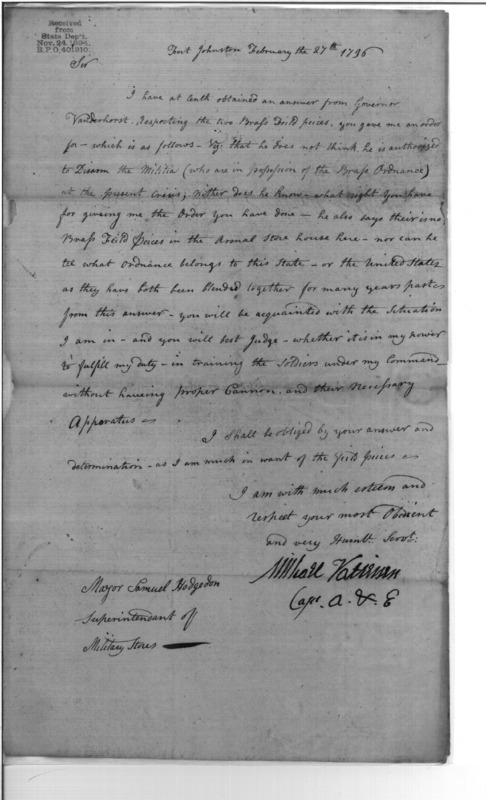 Received
from
State Dep't.
Nov. 24, 1894.
R.P.O. 401910.
Fort Johnston February the 27th 1796
Sir
I have at lenth obtained an answer from Governor
Vanderhorst. Respecting the two Brass Feild peices, you gave me an order
for - which is as follows - Viz. that he does not think he is authorized
to Disarm the Militia (who are in possession of the Brass Ordnance)
at the present Crisis; nither does he know - what right you have
for giveing me the Order you have done - he also says their is no
Brass Feild peices in the Arsnal Store house here - nor can he
tel what Ordnance belongs to this State - or the United States
as they have both been blended together for many years past
from this answer - you will be acquainted with the Situation
I am in - and you will best Judge - whether it is in my power
to fulfill my duty - in training the Soldiers under my Command
without haveing proper Cannon, and their necessary
Apparatus
I Shall be obliged by your answer and
determination - as I am much in want of the Feild peices
I am with much esteem and
respect your most Obedient
and very Humbl. Servt.
Michael Kalteisen
Capt. A. & E
Mayor Samuel Hodgedon
Superintendant of
Military Stores